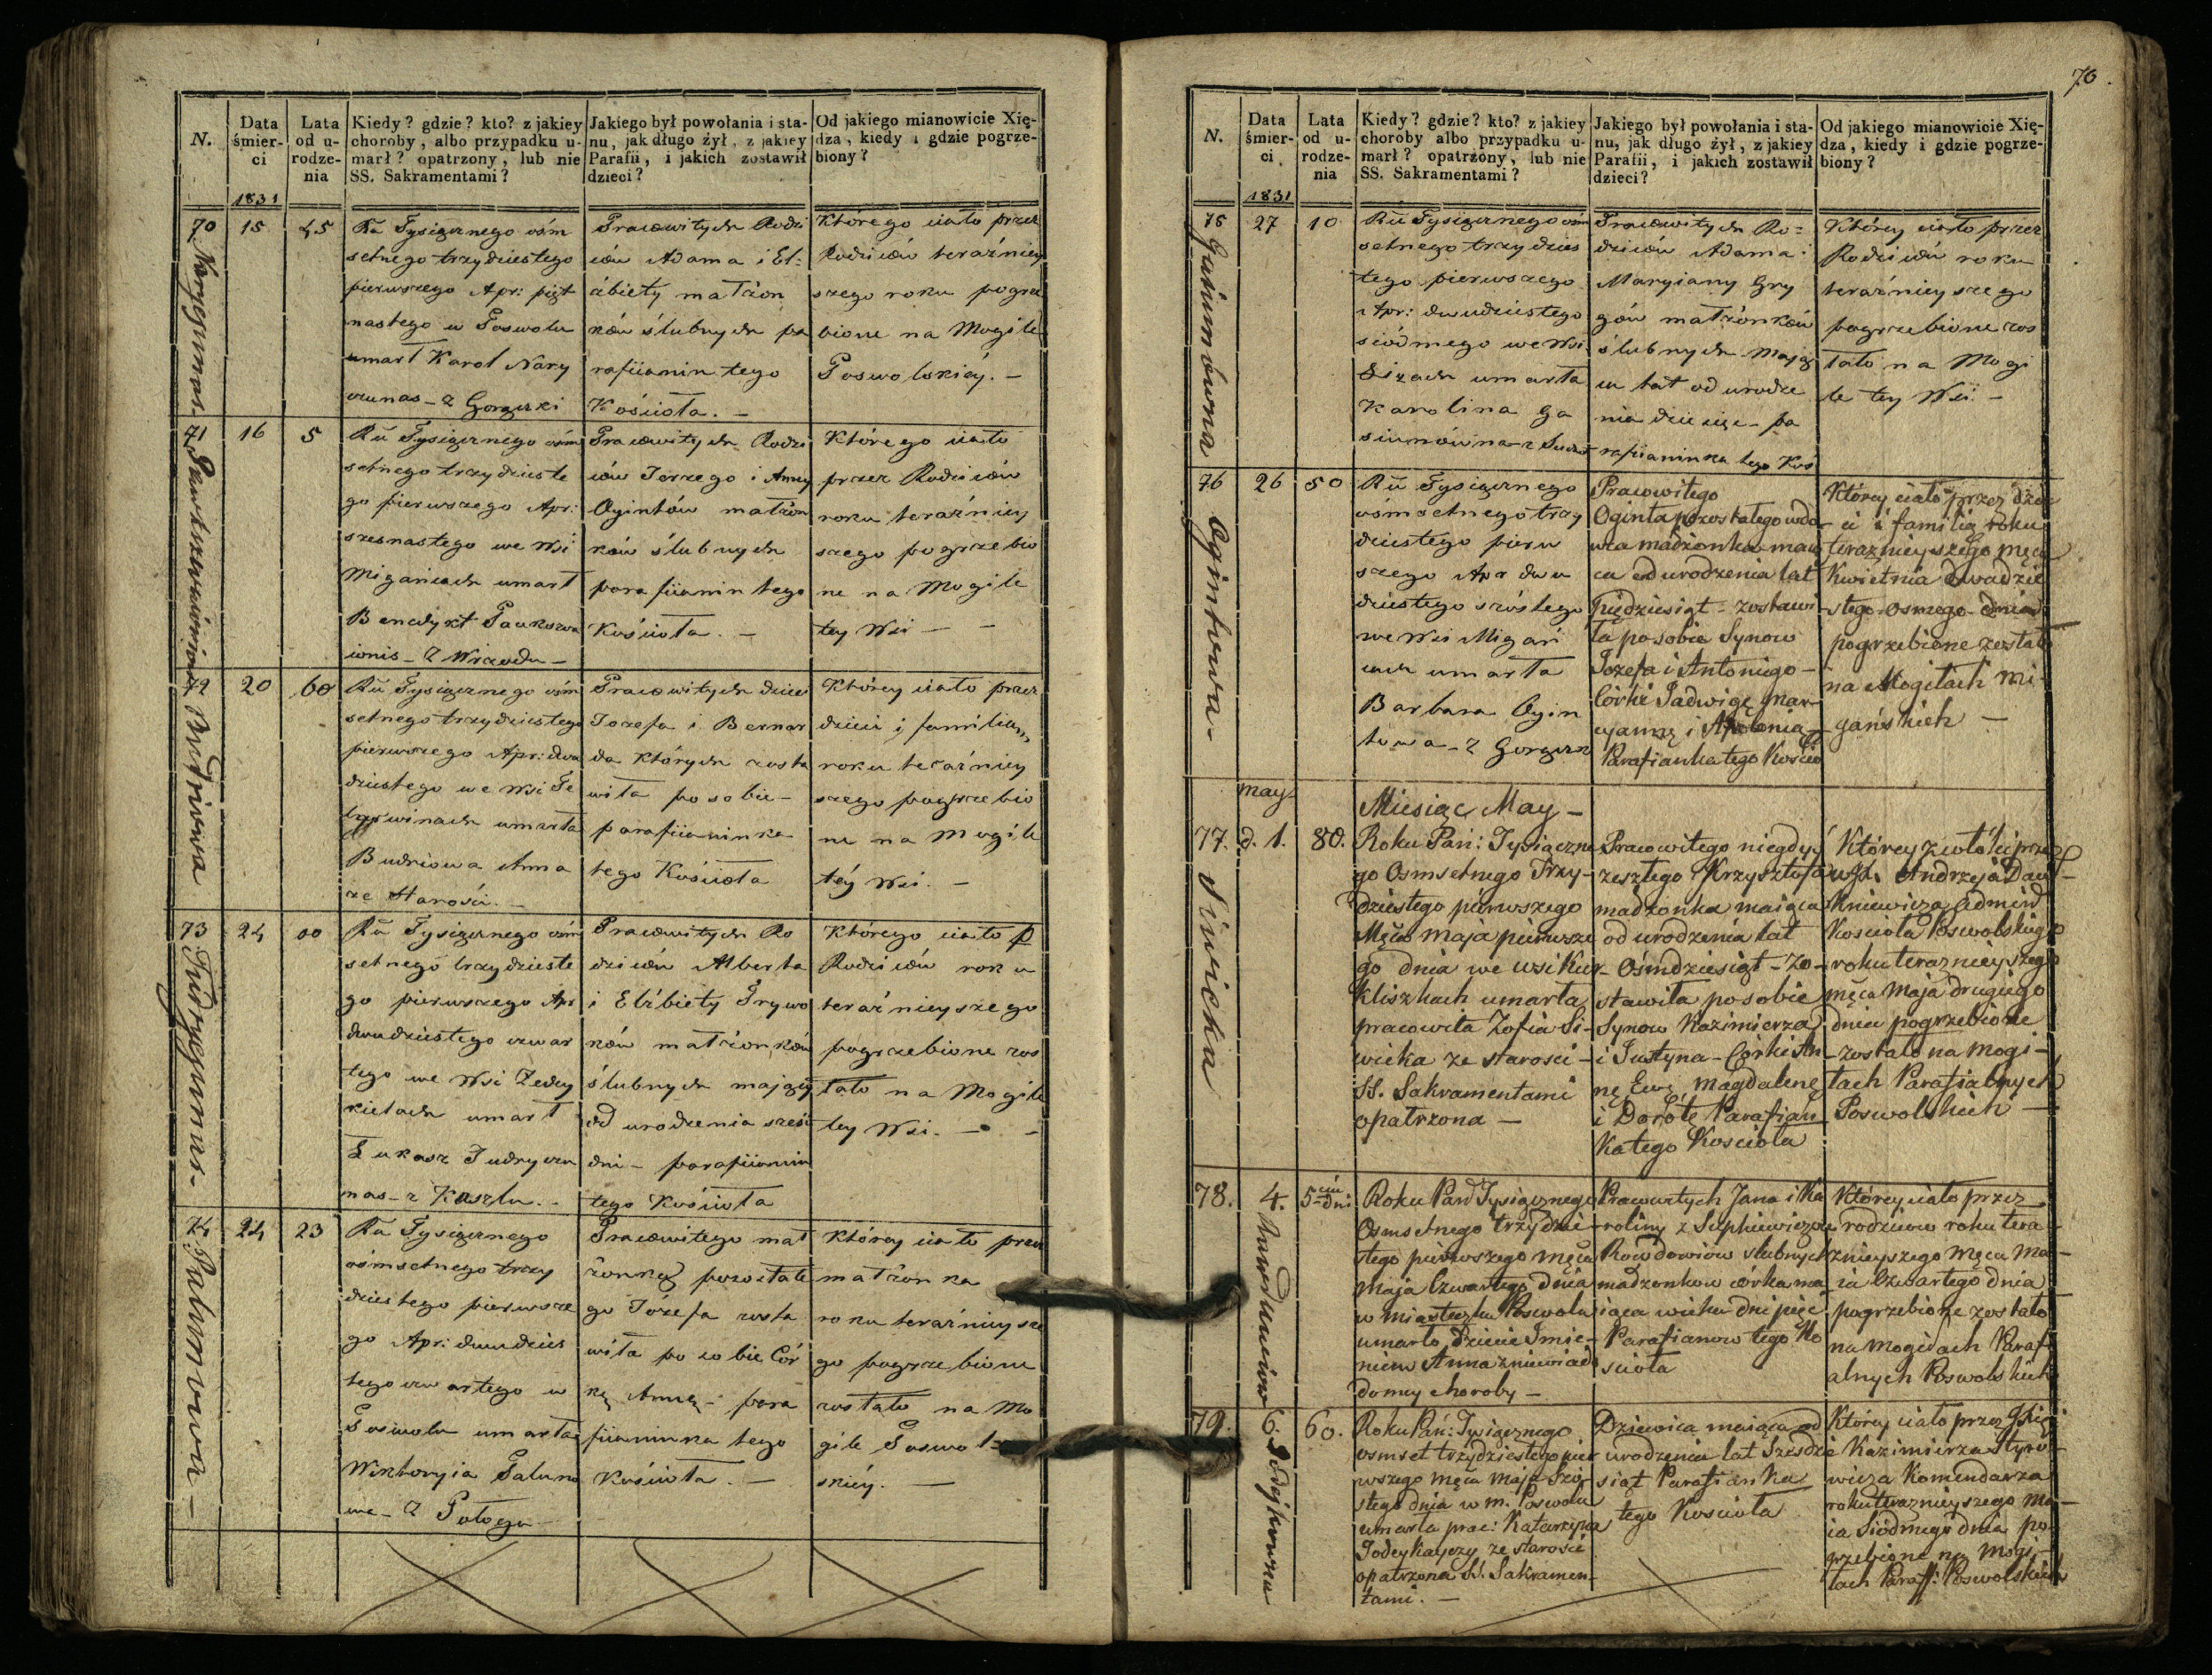 N.
Data śmierci
1831
Lata od urodzenia
Kiedy? gdzie? kto? z jakiey
choroby, albo przypadku u-
marł? opatrzony, lub nie
SS. Sakramentami?
Jakiego był powołania i sta-
nu, jak długo żył, z jakiey
Parafii, i jakich zostawił
dzieci?
Od jakiego mianowicie Xię-
dza, kiedy i gdzie pogrze-
biony?
70
15
45
Ru Tysiącznego ośm
setnego trzydziestego
pierwszego Apr: pięt
nastego w Poswolu
umarł Karol Nary
czunas - z Gorączki
Pracowitych Rodzi
ców Adama i El:
żbiety małżon
ków ślubnych pa
rafiianin tego
Kościoła. -
Którego ciało przez
Rodziców teraźniey
szego roku pogrze
bione na Mogile
Poswolskiéy. -
71
16
5
Ru Tysiącznego ośm
setnego trzydzieste
go pierwszego Apr:
szesnastego we Wsi
Migańcach umarł
Benedykt Paukszwa
ionis - z Wrzodu -
Pracowitych Rodzi
ców Jerzego i Anny
Ogintów małżon
ków ślubnych
parafiianin tego
Kościoła. -
Którego ciało
przez Rodziców
roku teraźniey
szego pogrzebio
ne na Mogile
tey Wsi - -
72 Budriowa
20
60
Ru Tysiącznego ośm
setnego trzydziestego
pierwszego Apr: dwu
dziestego we Wsi
umarła
Budriowa Anna
ze Starości. -
Pracowitych dzieci
Jozefa i Bernar
da których zosta
wiła po sobie -
parafiianinka
tego Kościoła
Którey ciało przez
dzieci i familiią
roku teraźniey
szego pogrzebio
ne na Mogile
téy Wsi. -
73 Judryczunas -
24
00
Ru Tysiącznego ośm
setnego trzydzieste
go pierwszego Apr
dwudziestego czwar
tego we Wsi
umarł
Łukasz Judryczu
nas - z Kaszlu. -
Pracowitych Ro
dziców Alberta
i Elżbiety Prywo
ków małżonków
ślubnych maiący
od urodzenia sześć
dni - parafiianin
tego Kościoła
Którego ciało p
Rodziców roku
teraźnieyszego
pogrzebione zos
tało na Mogile
tey Wsi. - -
74 Palunowa -
24
23
Ru Tysiącznego
ośmsetnego trzy
dziestego pierwsze
go Apr: dwudzies
tego czwartego w
Poswolu umarła
Wiktoryia Paluno
wa - z Połogu
Pracowitego mał
żonkę pozostałe
go Józefa zosta
wiła po sobie Cór
kę Annę - para
fiianinka tego
Kościoła. -
Którey ciało przez
małżonka
roku teraźnieysze
go pogrzebione
zostało na Mo
gile Poswol
skiéy. -
70.
N.
Data śmierci
1831
Lata od urodzenia
Kiedy? gdzie? kto? z jakiey
choroby albo przypadku u-
marł? opatrzony, lub nie
SS. Sakramentami?
Jakiego był powołania i sta-
nu, jak długo żył, z jakiey
Parafii, i jakich zostawił
dzieci?
Od jakiego mianowicie Xię-
dza, kiedy i gdzie pogrze-
biony?
75 Gasiunówna
27
10
Ru Tysiącznego ośm
setnego trzydzies
tego pierwszego
Apr: dwudziestego
siódmego we Wsi
umarła
Karolina Ga
siunówna z
Pracowitych Ro=
dziców Adama i
Maryiany Gry
gów małżonków
ślubnych mają
ca lat od urodze
nia dziesięć - pa
rafiianinka tego Koś
Którey ciało przez
Rodziców roku
teraźnieyszego
pogrzebione zos
tało na Mogi
le tey Wsi. -
76 Ogintowa -
26
50
Ru Tysiącznego
ośmsetnego trzy
dziestego pierw
szego Apr dwu
dziestego szóstego
we Wsi Migań
cach umarła
Barbara Ogin
towa - z Gorącz
Pracowitego
Oginta pozostałego wdo
wca madżonka maią
ca od urodzenia lat
Pięćdziesiąt - zostawi
ła po sobie Synow
Jozefa i Antoniego -
Córki Jadwigę, Mar
cyannę i Apolonią -
Parafianka tego Kościo
Którey ciało przez dzie
ci i familią roku
teraznieyszego męca
Kwietnia dwudzie
stego - osmego - dnia
pogrzebione zostało
na Mogiłach Mi
gańskich -
may
Miesiąc May -
77. Siwicka
d. 1.
80.
Roku Pań: Tysiączne
go Osmsetnego Trzy-
dziestego pierwszego
Męca Maja pierwsze
go dnia we wsi Kur-
kliszkach umarła
pracowita Zofia Si-
wicka ze starosci -
SS. Sakramentami
opatrzona -
Pracowitego niegdyś
zeszłego Krzysztofa
madżonka maiąca
od urodzenia lat
Ośmdziesiąt - Zo-
stawiła po sobie
Synow Kazimierza
i Justyna - Córki An
nę Ewę, Magdalenę
i Dorotę Parafian
ka tego Kościoła
Którey zwłóki przez
Andrzeja Dau-
kniewicza Admin
Kościoła Poswolskiego
roku teraznieyszego
męca Maja drugiego
dnia pogrzebione
zostało na Mogi-
łach Parafialnych
Poswolskich -
78.
4.
5ciu dni
Roku Pań Tysiącznego
Osmsetnego trzydzie-
stego pierwszego męca
Maja Czwartego dnia
w miasteczku Poswolu
umarło dziecie Imie-
niem Anna z niewiad
domey choroby -
Pracowitych Jana i Ka
roliny z
slubnych
madzonkow córka ma
iąca wieku dni pięc
Parafianow tego Ko
scioła
Którey ciało przez
rodzicow roku tera-
znieyszego męca Ma-
ia Czwartego dnia
pogrzebione zostało
na Mogiłach Parafi
alnych Poswolskich
79. Podeykowna
6
60.
Roku Pań: Tysiącznego
osmset trzydziestego pier
wszego męca Maja Szo-
stego dnia w m. Poswolu
umarła prac: Katarzyna
ze starosci
opatrzona SS. Sakramen-
tami. -
Dziewica maiąca od
urodzenia lat Sześdzie
siąt Parafianka
tego Kościoła
Którey ciało przez
Kazimierza Styro-
wicza Komendarza
roku teraznieyszego Ma-
ia Siódmego dnia po-
grzebione na Mogi-
łach Paraff: Poswolskich